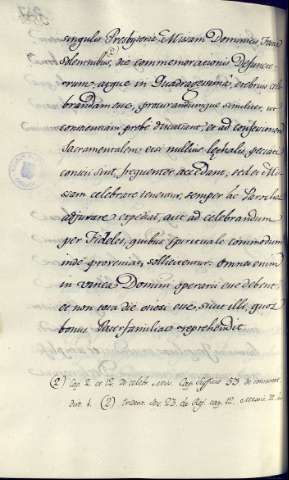 singulis Presbyteris Missam Dominicis
diebus, de commemoracionis Defuncto-
rum, atque in Quadragesima, crebrius cele-
brandam esse, procurandumque similiter, ut
contentam probe ad confessionem
Sacramentalem, etsi nullius lethalis peccati
conscii sint, frequenter accedant, sed et Mi-
ssam celebrare tenentur, semper hic Parochus
adjuvare expediat, aut ad celebrandum
per Fideles, quibus spirituale commodum
inde proveniat, sollicitentur: omnes enim
in vinea Domini operarii esse debent,
et non tota die otiosi esse, sicut illi, quos
bonus Paterfamilias reprehendit.
(2) Cap. 2 et 12 de celebr. Miss. Cap. 53 de consecrat.
dist. 1. (2) trident. ses. 23. de Ref. cap. 12.